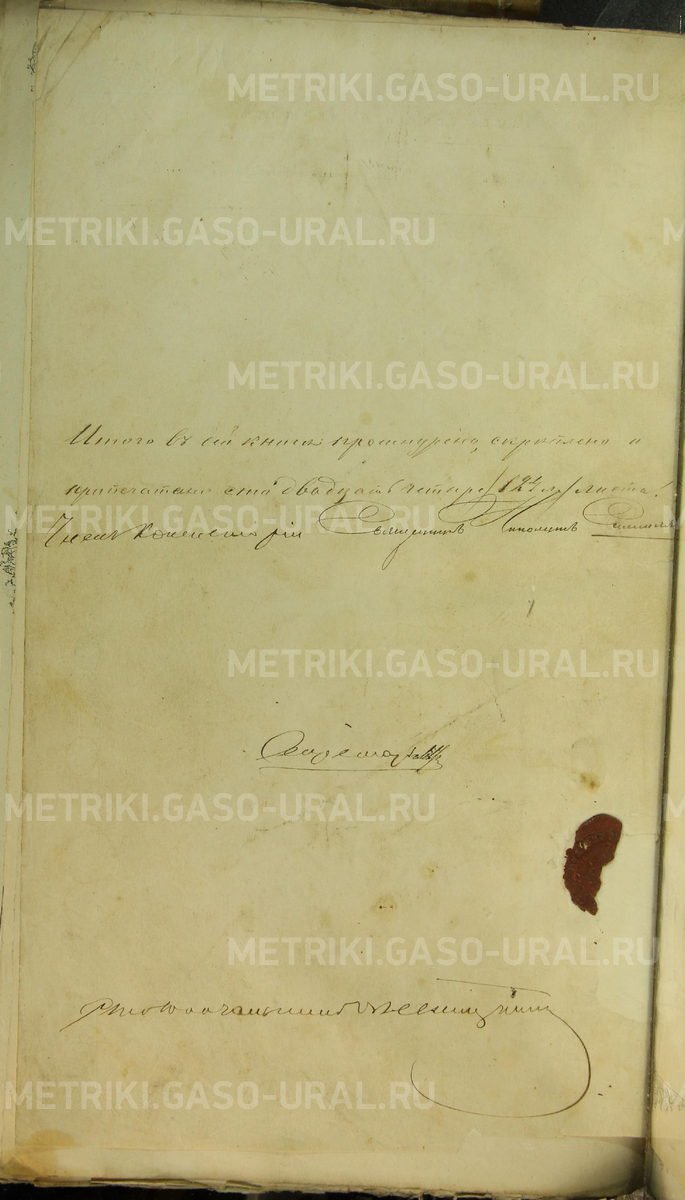 METRIKI.GASO-URAL.RU
METRIKI.GASO-URAL.RU
METRIKI.GASO-URAL.RU
Итого въ сей книгѣ прошнурено, скрѣплено и
METRIKI.GASO-URAL.RU
припечатано сто двадцать четыре /124 л./ листа.
Членъ Консисторіи Священникъ Ипполитъ
METRIKI.GASO-URAL.RU
Секретарь
METRIKI.GASO-URAL.RU
METRIKI.GASO-URAL.RU
Столоначальникъ
METRIKI.GASO-URAL.RU